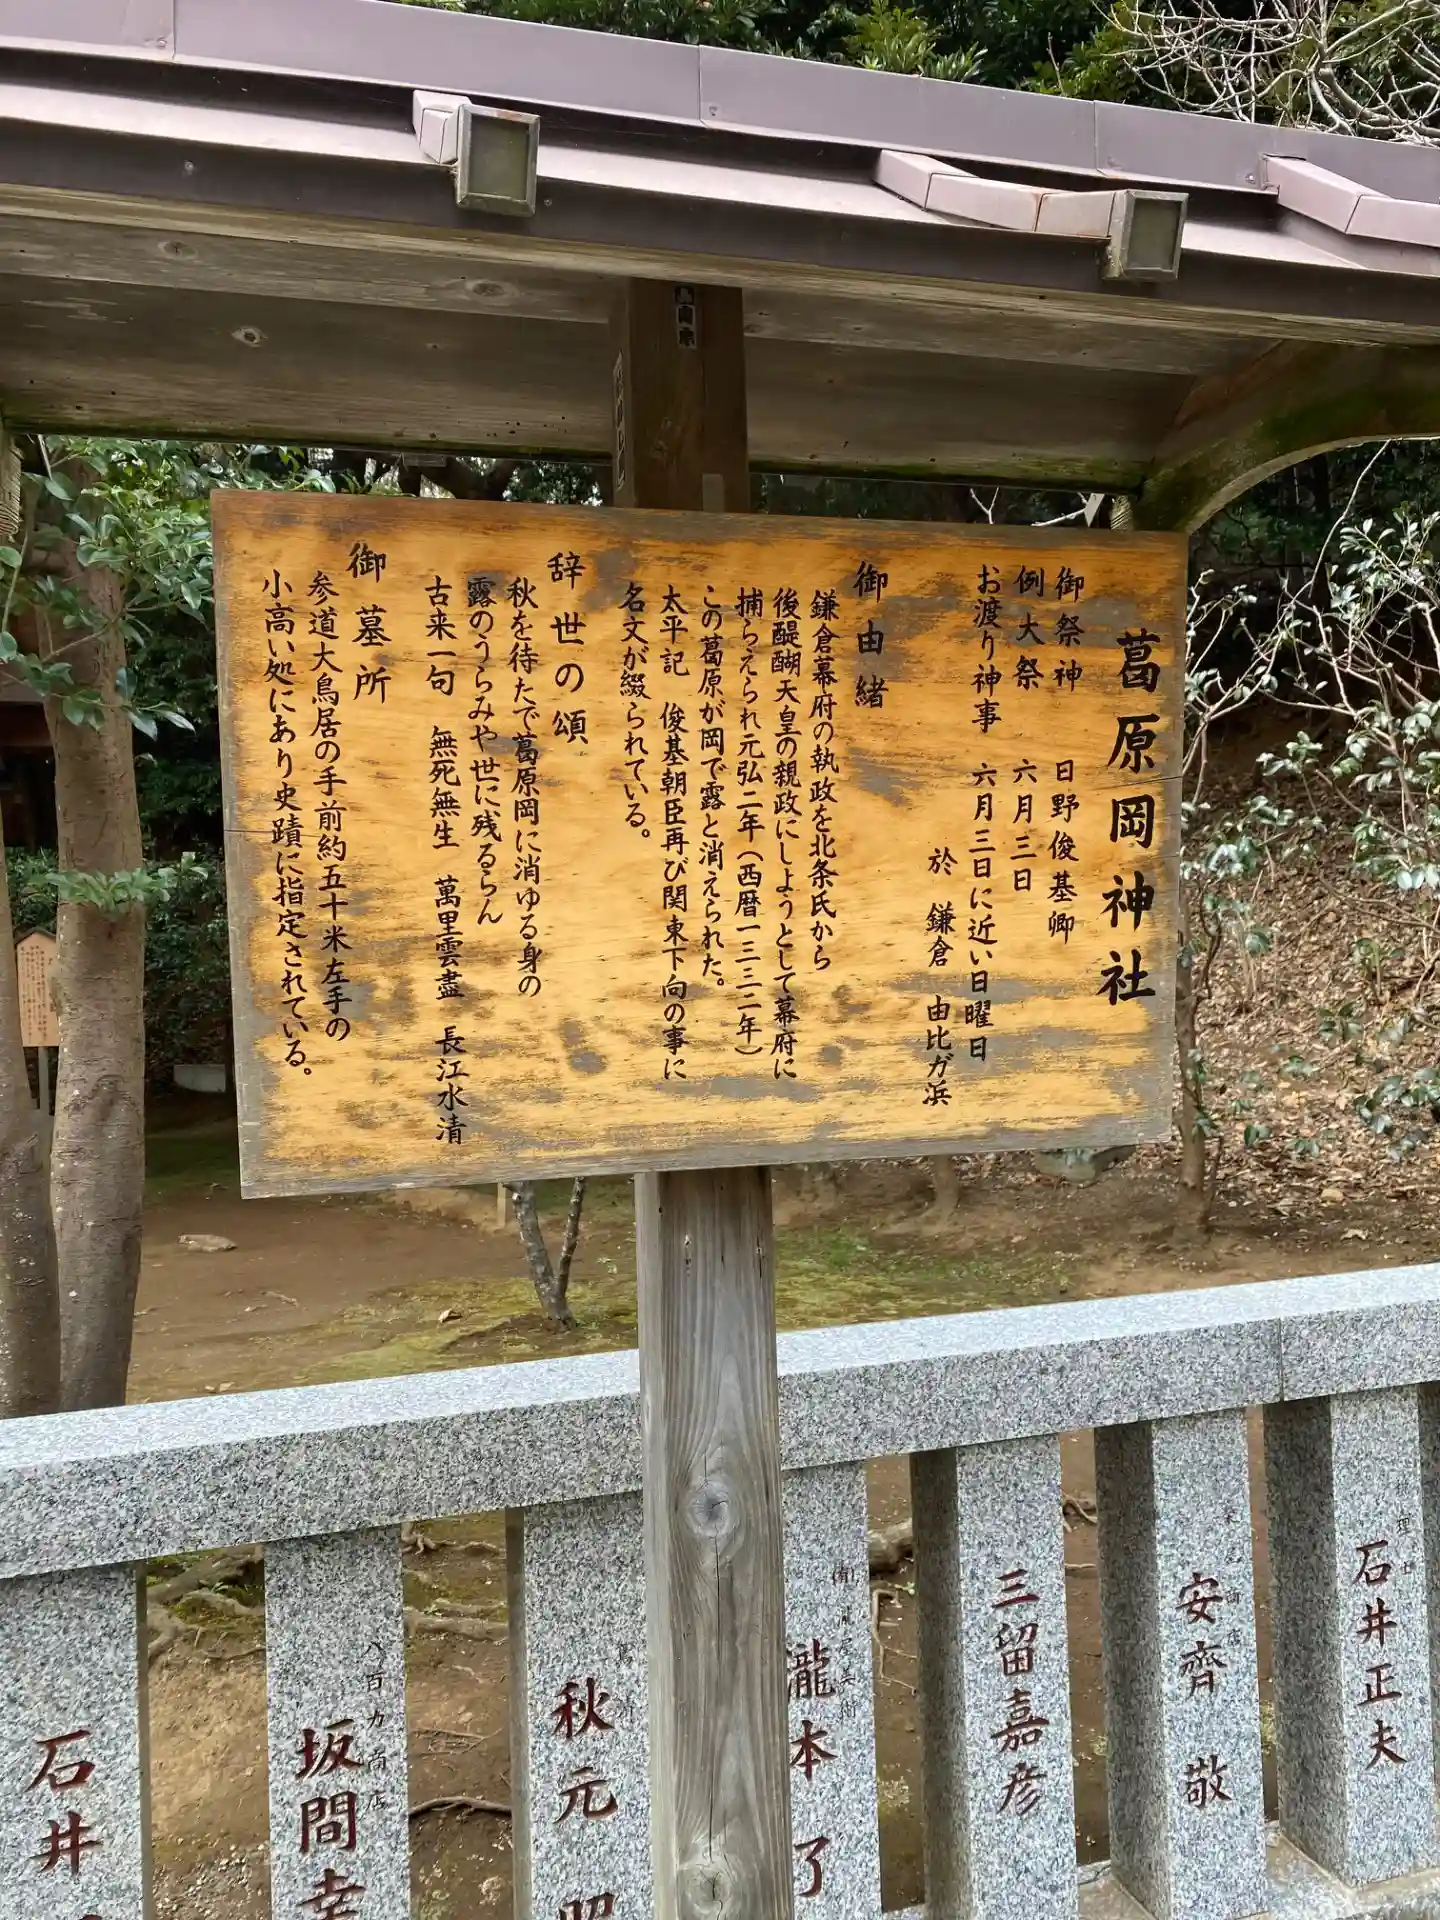 葛原岡神社
御祭神 日野俊基卿
例大祭 六月三日
お渡り神事 六月三日に近い日曜日
於 鎌倉 由比ガ浜
御由緒
鎌倉幕府の執政を北条氏から
後醍醐天皇の親政にしようとして幕府に
捕らえられ元弘二年(西暦一三三二年)
この葛原が岡で露と消えられた。
太平記 俊基朝臣再び関東下向の事に
名文が綴られている。
辞世の頌
秋を待たで葛原岡に消ゆる身の
露のうらみや世に残るらん
古来一句 無死無生 萬里雲盡 長江水清
御墓所
参道大鳥居の手前約五十米左手の
小高い処にあり史蹟に指定されている。
石井正夫
安齊敬
三留嘉彦
(有)
瀧本了
秋元
八百力商店
坂間幸
石井